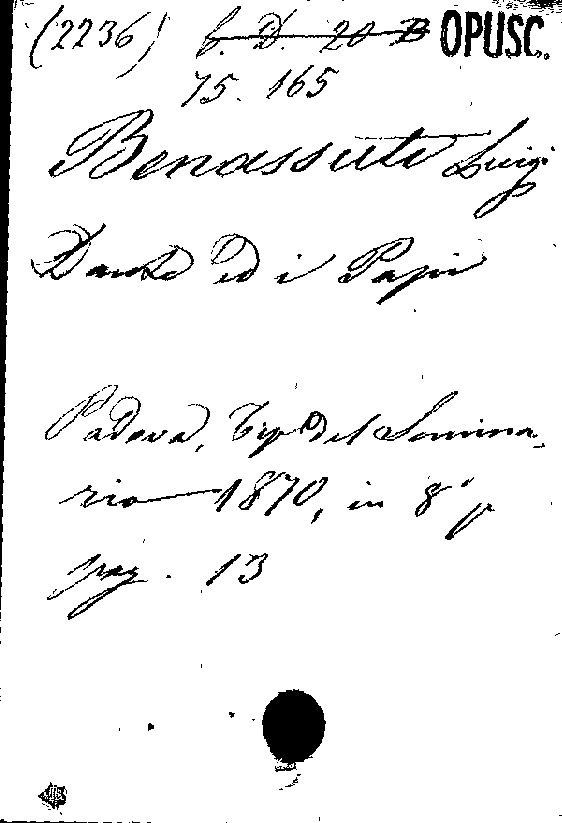 (2236) b. D. 20 B OPUSC.
75. 165
Benassuti Luigi
Dante ed i Papi
Padova, Tip. del Semina-
rio 1870, in 8° p
pag. 13